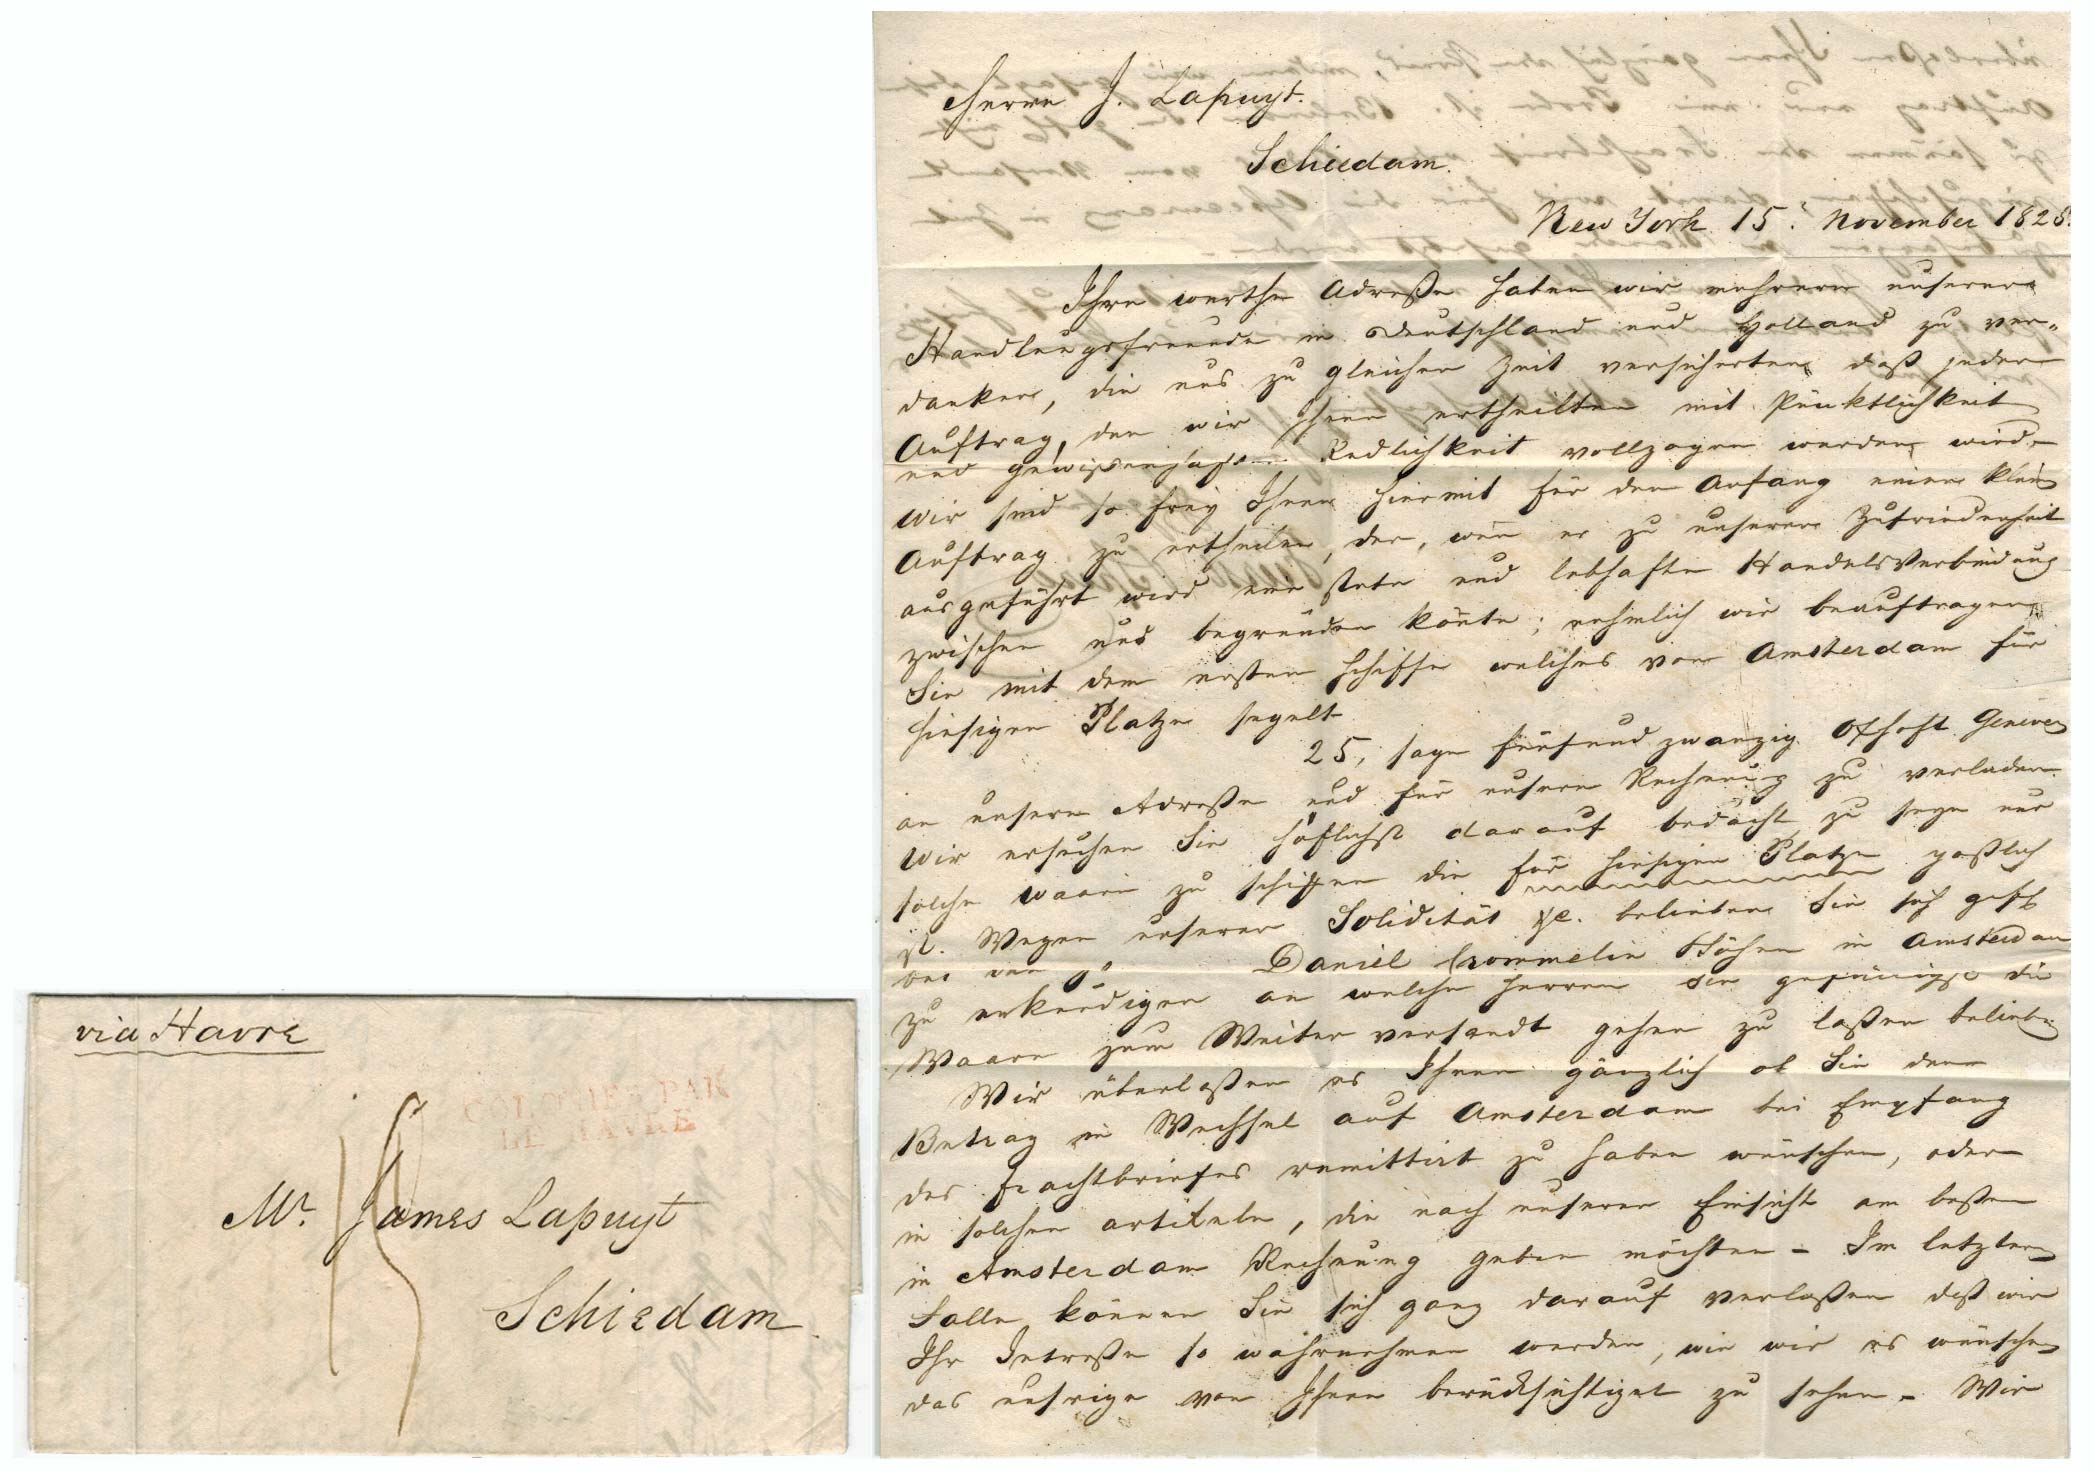 via Havre
COLONIES PAR
LE HAVRE
15
Mr. James Lapuyt
Schiedam
Herrn J. Lapuyt.
Schiedam.
New York 15. November 1828.
Ihre werthe Adreße haben wir mehrern unserer
Handlungsfreunde in Deutschland und Holland zu ver-
danken, die uns zu gleicher Zeit versicherten daß jeder
Auftrag, den wir Ihnen ertheilten mit Pünktlichkeit
und gewissenhafter Redlichkeit vollzogen werden wird.
Wir sind so frey Ihnen hiermit für den Anfang einen klein
Auftrag zu ertheilen, der, wen̄ er zu unserer Zufriedenheit
ausgeführt wird eine stete und lebhafte Handelsverbindung
zwischen uns begründen kön̄te; nehmlich wir beauftragen
Sie mit dem ersten Schiffe welches von Amsterdam für
hiesigen Platze segelt
25, sage fünfundzwanzig Oxhoft Genever
an unsere Adreße und für unsere Rechnung zu verladen.
Wir ersuchen Sie höflichst darauf bedacht zu seyn nur
solche Waare zu schiffen die für hiesigen Platze paßlich
ist. Wegen unserer Solidität &c. belieben Sie sich gefl
bei den Hº Daniel Crommelin Söhne in Amsterdam
zu erkundigen an welche Herren Sie gefälligst die
Waare zum Weiter versandt gehen zu laßen belieben
Wir überlaßen es Ihnen gänzlich ob Sie den
Betrag in Wechsel auf Amsterdam bei Empfang
des Frachtbriefes remittirt zu haben wünschen, oder
in solchen Artikeln, die nach unserer Einsicht am besten
in Amsterdam Rechnung geben möchten - Im letztern
Falle können Sie sich ganz darauf verlaßen daß wir
Ihr Intreße so wahrnehmen werden, wie wir es wünschen
das unsrige von Ihnen berücksichtiget zu sehen - Wir